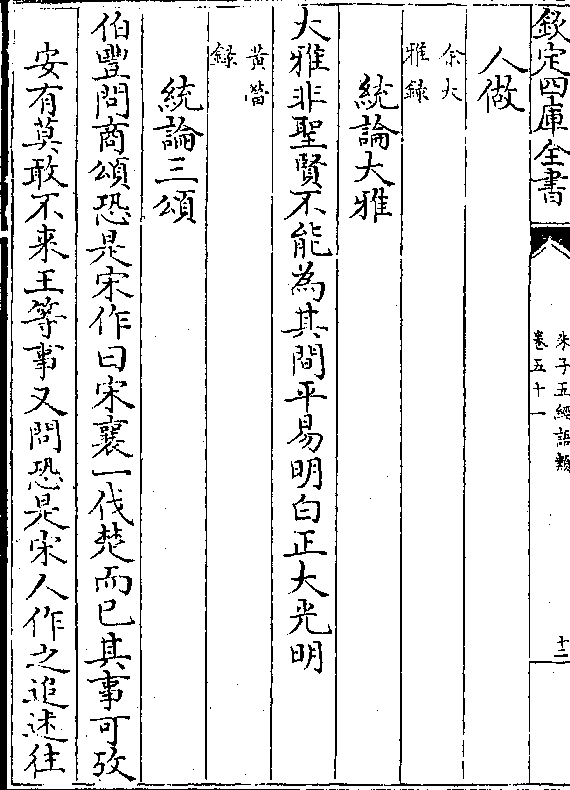 欽定四庫全書
朱子五經語類
卷五十一
十二
人做
余大
雅録
統論大雅
大雅非聖賢不能為其間平易明白正大光明
黄㽦
録
統論三頌
伯豐問商頌恐是宋作曰宋襄一伐楚而已其事可攷
安有莫敢不来王等事又問恐是宋人作之追述往